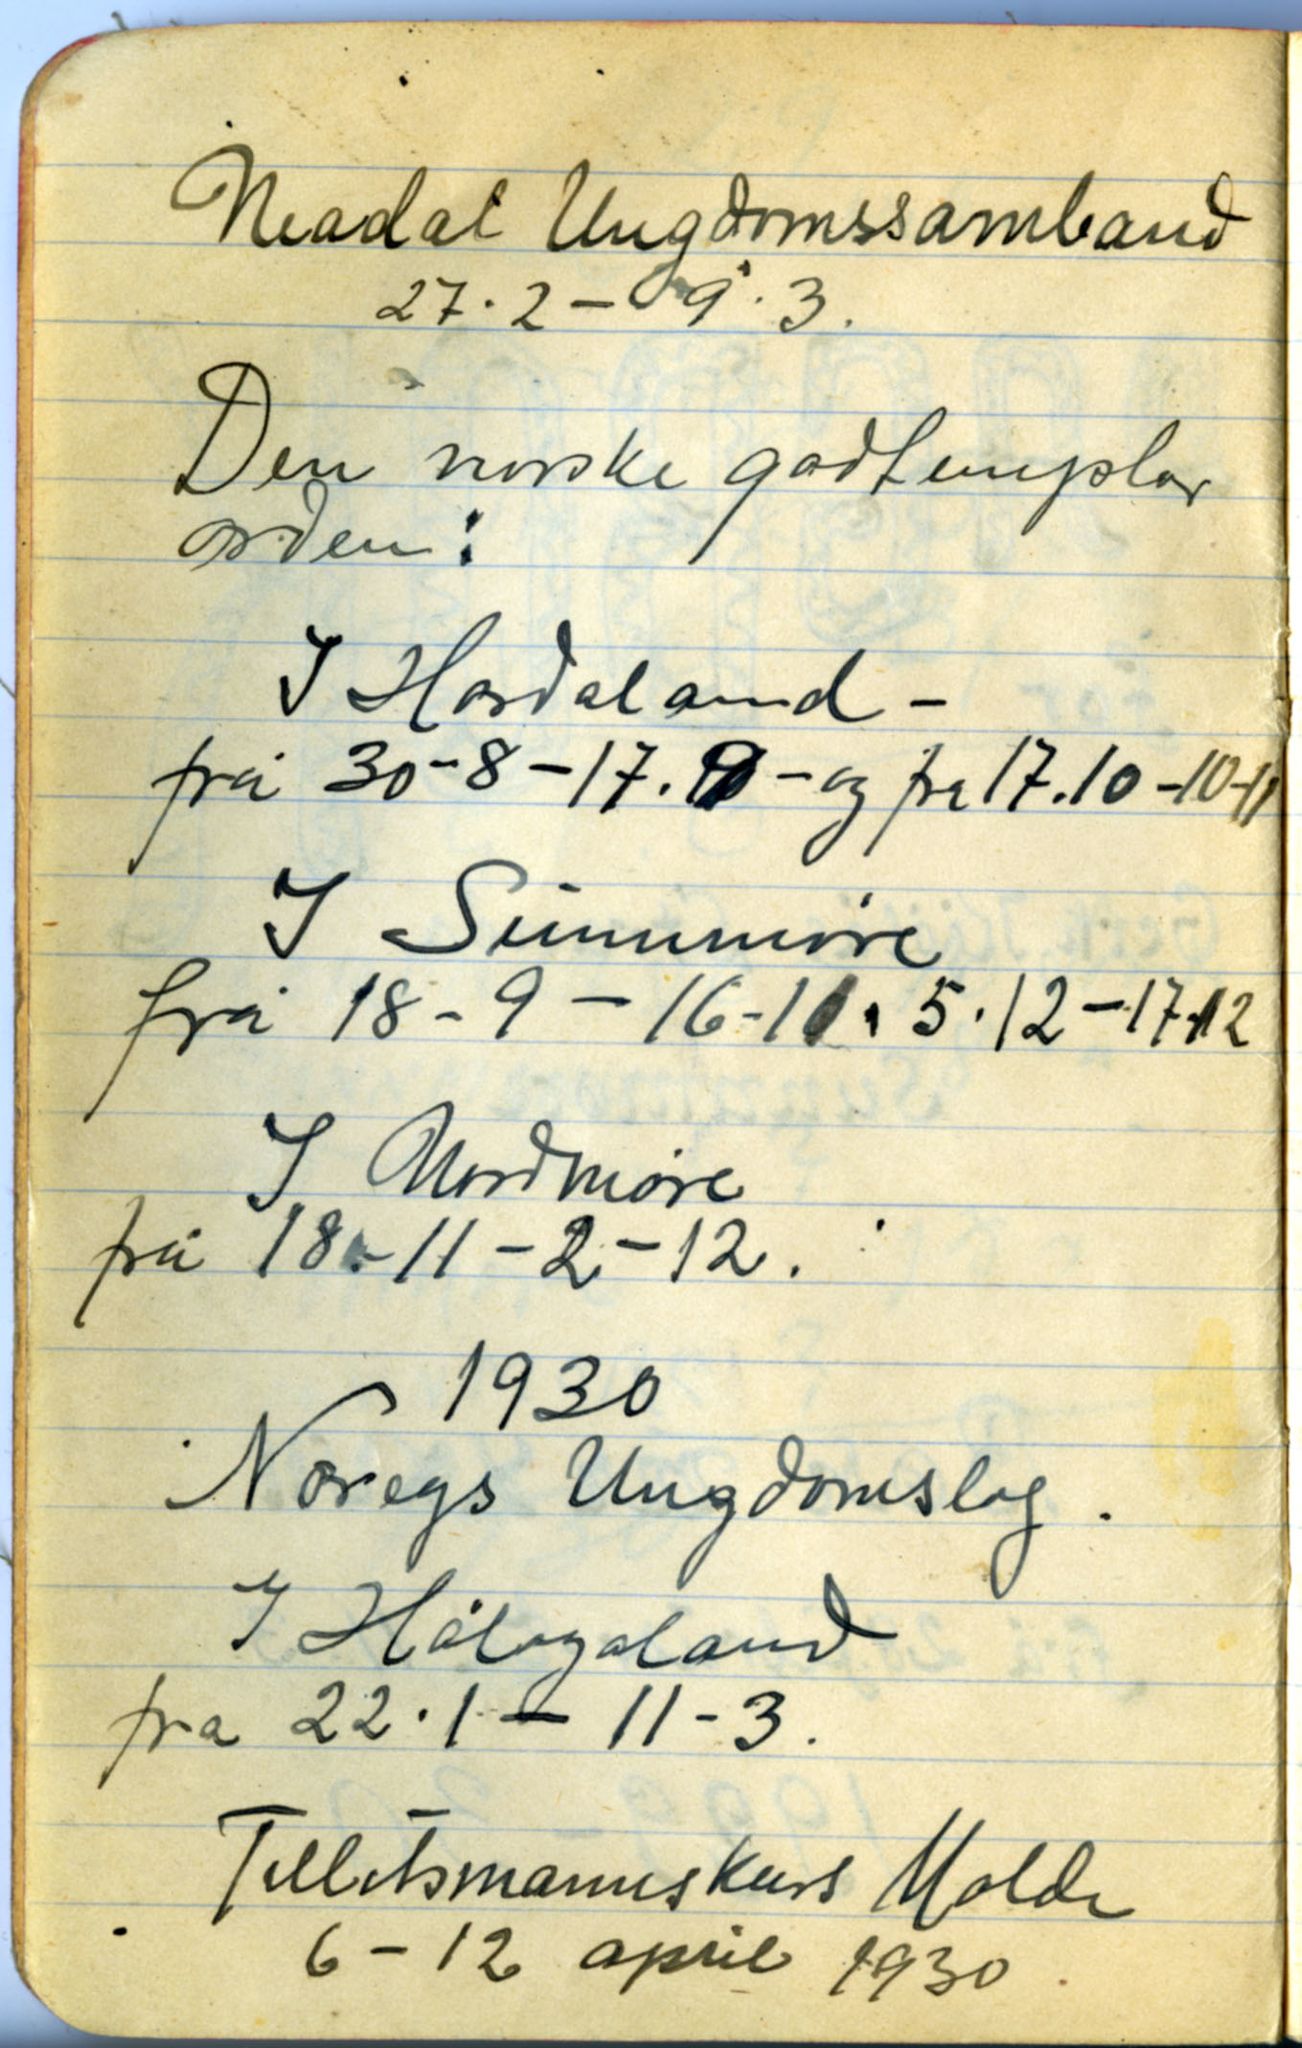 Neadal Ungdomssamband
27.2 - 9.3.
Den norske godtemplar
orden:
I Hordaland -
frå 30-8-17.9 - og fra 17.10-10-11
I Sunnmøre
frå 18-9-16-11. 5.12-17.12
I Nordmøre
frå 18-11-2-12.
1930
Noregs Ungdomslag.
I Hålogaland
fra 22.1 - 11-3.
Tillitsmannskurs Molde
6-12 april 1930.